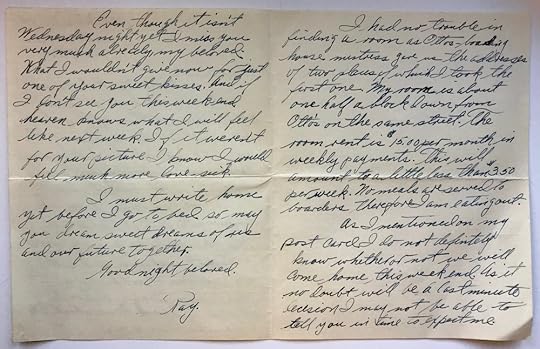 Even though it isn't
Wednesday night yet I miss you
very much already my beloved.
What I wouldn't give now for just
one of your sweet kisses. And if
I don't see you this week end
heaven knows what I will feel
like next week. If it weren't
for your picture I know I would
feel much more love-sick.
I must write home
yet before I go to bed so may
you dream sweet dreams of us
and our future together.
Goodnight beloved.
Ray.
I had no trouble in
finding a room as Otto's boarding
house mistress gave us the addresses
of two places of which I took the
first one. My room is about
one half a block down from
Otto's on the same street. The
room rent is $15.00 per month in
weekly payments. This will
amount to a little less than $3.50
per week. No meals are served to
boarders therefore I am eating out.
As I mentioned on my
post card I do not definitely
know whether or not we will
come home this week end. As it
no doubt will be a last minute
decision I may not be able to
tell you in time to expect me